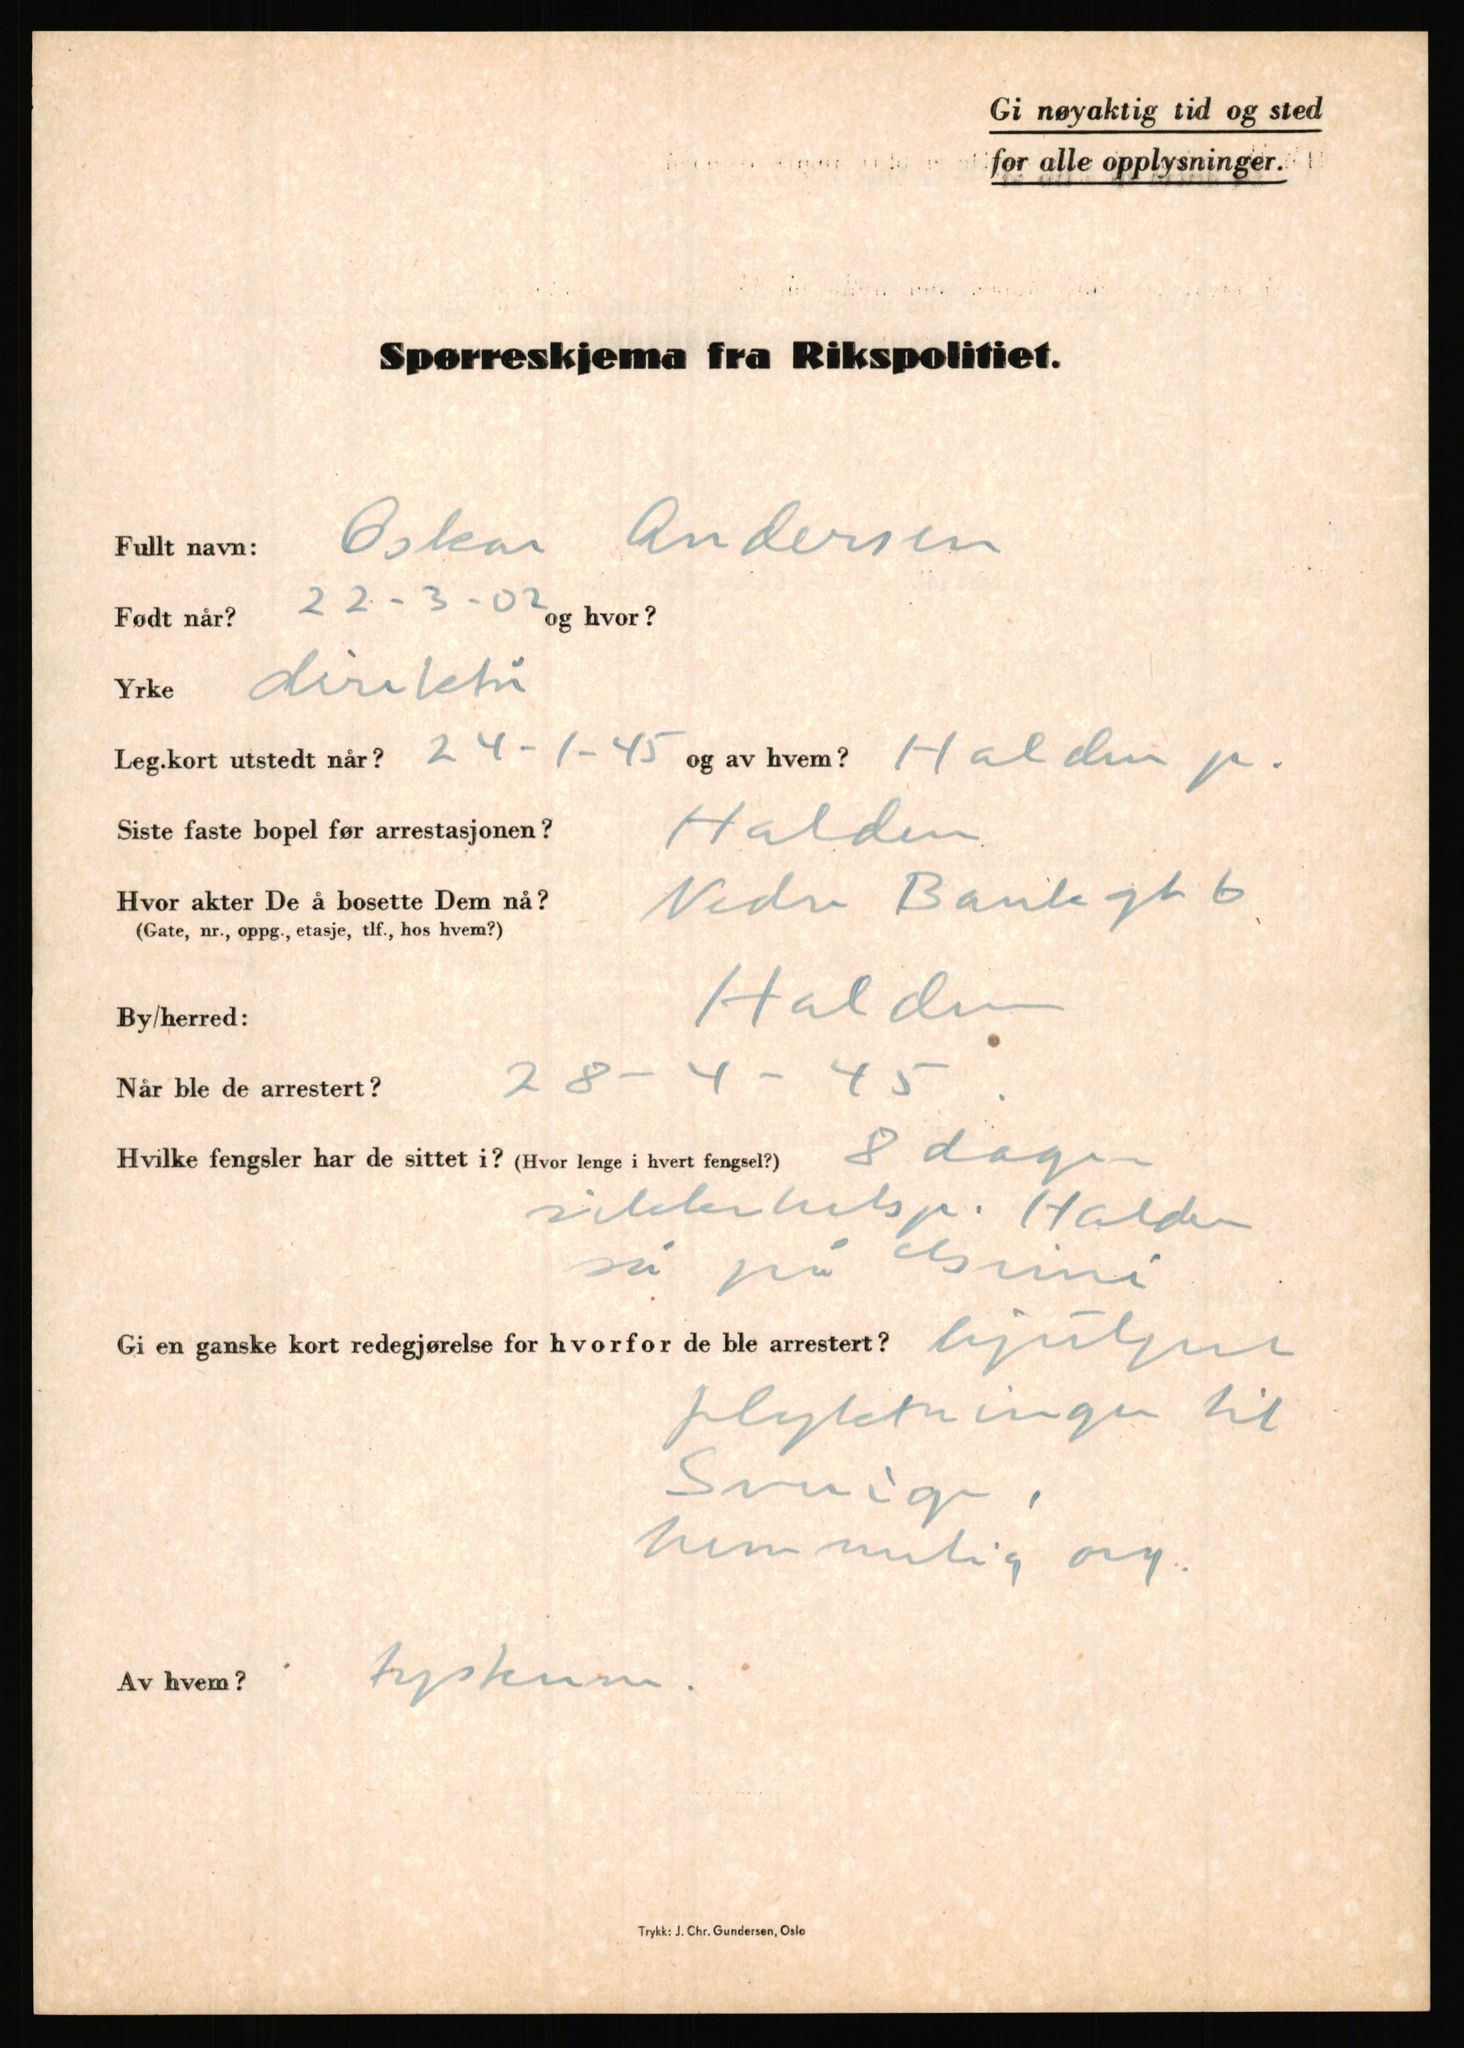 Gi nøyaktig tid og sted
for alle opplysninger.
Spørreskjema fra Rikspolitiet.
Fullt navn: Oskar Andersen
Født når? 22-3-02 og hvor?
Yrke direktør
Leg.kort utstedt når? 24-1-45 og av hvem? Halden p.
Siste faste bopel før arrestasjonen? Halden
Hvor akter De å bosette Dem nå? Nedre Bankgt 6
(Gate, nr., oppg., etasje, tlf., hos hvem?)
By/herred: Halden
Når ble de arrestert? 28-4-45.
Hvilke fengsler har de sittet i? (Hvor lenge i hvert fengsel?) 8 dager
sikkerhetsp. Halden
så på
Gi en ganske kort redegjørelse for hvorfor de ble arrestert? hjulpet
flyktninger til
Sverige,
hemmelig org.
Av hvem? tyskerne.
Trykk: J. Chr. Gundersen, Oslo